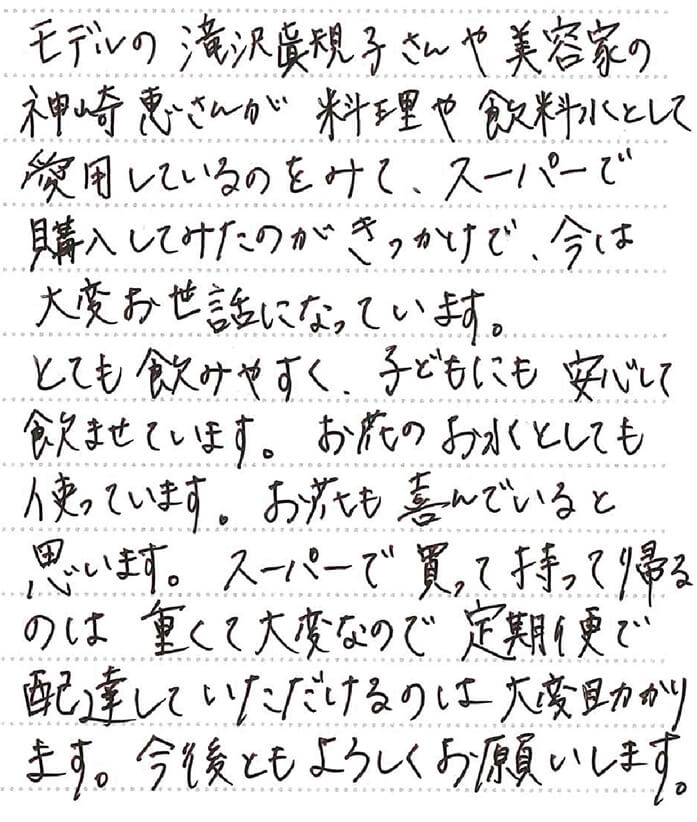 モデルの 滝沢眞規子さんや美容家の
神崎恵さんが 料理や飲料水として
愛用しているのをみて、スーパーで
購入してみたのがきっかけで、今は
大変お世話になっています。
とても飲みやすく、子どもにも 安心して
飲ませています。 お花のお水としても
使っています。お花も喜んでいると
思います。スーパーで買って持って帰る
のは 重くて大変なので 定期便で
配達していただけるのは大変助かり
ます。今後ともよろしくお願いします。